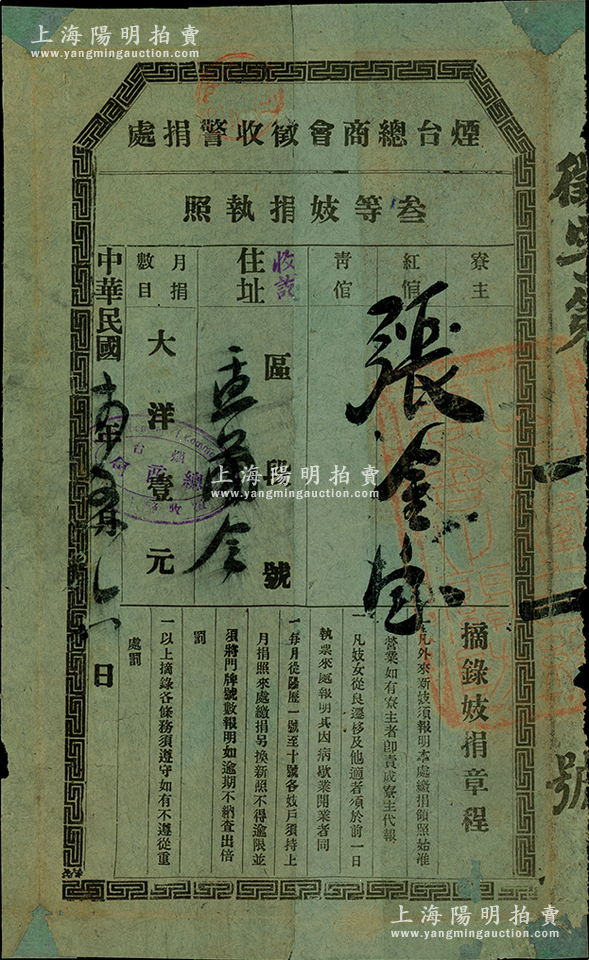 上海陽明拍賣
www.yangmingauction.com
上海陽明拍賣
www.yangmingauction.com
煙台總商會徵收警捐處
叁等妓捐執照
寮主
紅倌
青倌
張金
收訖
住址
區 段 號
月捐數目
大洋壹元
中華民國
年
月
日
摘錄妓捐章程
一凡外來新妓須報明本處繳捐領照始准
營業如有寮主者即責成寮主代報
一凡妓女從良遷移及他適者須於前一日
執票來處報明其因病歇業開業者同
一每月從陰歷一號至十號各妓戶須持上
月捐照來處繳捐另換新照不得逾限並
須將門牌號數報明如逾期不納查出倍
罰
一以上摘錄各條務須遵守如有不遵從重
處罰
號
上海陽明拍賣
www.yangmingauction.com
上海陽明拍賣
www.yangmingauction.com